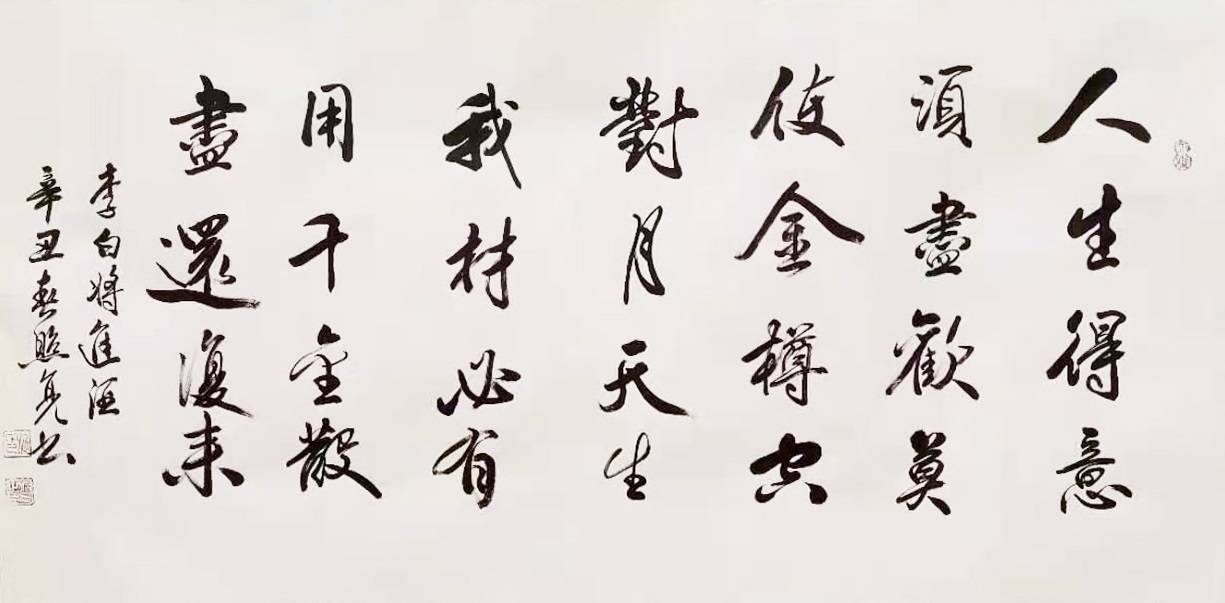 人生得意
須盡歡莫
使金樽空
對月天生
我材必有
用千金散
盡還復来
李白将進酒
辛丑春亮书